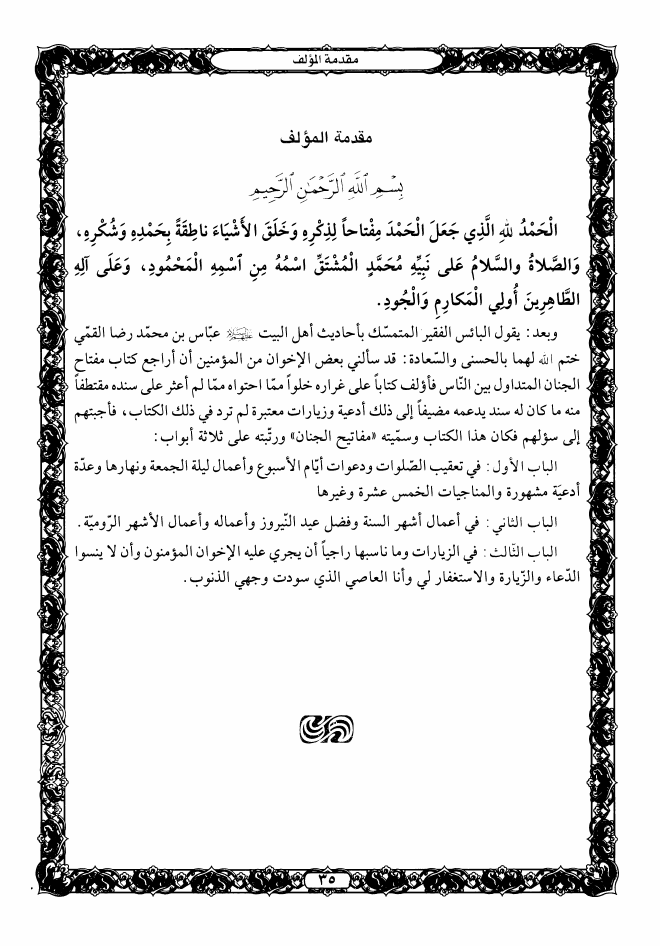 مقدمة المؤلف
مقدمة المؤلف
بِسْمِ اللَّهِ الرَّحْمَٰنِ الرَّحِيمِ
الْحَمْدُ للهِ الَّذِي جَعَلَ الْحَمْدَ مِفْتاحاً لِذِكْرِهِ وَخَلَقَ الأَشْيَاءَ ناطِقَةً بِحَمْدِهِ وَشُكْرِهِ،
وَالصَّلاةُ والسَّلامُ عَلى نَبِيِّهِ مُحَمَّدٍ الْمُشْتَقِّ اسْمُهُ مِنِ اسْمِهِ الْمَحْمُودِ، وَعَلَى آلِهِ
الطَّاهِرِينَ أُولِي الْمَكارِمِ وَالْجُودِ.
وبعد: يقول البائس الفقير المتمسّك بأحاديث أهل البيت عباّس بن محمّد رضا القمّي
ختم الله لهما بالحسنى والسّعادة: قد سألني بعض الإخوان من المؤمنين أن أراجع كتاب مفتاح
الجنان المتداول بين النّاس فأؤلف كتاباً على غراره خلواً ممّا احتواه ممّا لم أعثر على سنده مقتطفاً
منه ما كان له سند يدعمه مضيفاً إلى ذلك أدعية وزيارات معتبرة لم ترد في ذلك الكتاب، فأجبتهم
إلى سؤلهم فكان هذا الكتاب وسمّيته «مفاتيح الجنان» ورتّبته على ثلاثة أبواب:
الباب الأول: في تعقيب الصّلوات ودعوات أيّام الأسبوع وأعمال ليلة الجمعة ونهارها وعدّة
أدعيّة مشهورة والمناجيات الخمس عشرة وغيرها
الباب الثاني: في أعمال أشهر السنة وفضل عيد النّيروز وأعماله وأعمال الأشهر الرّوميّة.
الباب الثّالث: في الزيارات وما ناسبها راجياً أن يجري عليه الإخوان المؤمنون وأن لا ينسوا
الدّعاء والزّيارة والاستغفار لي وأنا العاصي الذي سودت وجهي الذنوب.
٣٥